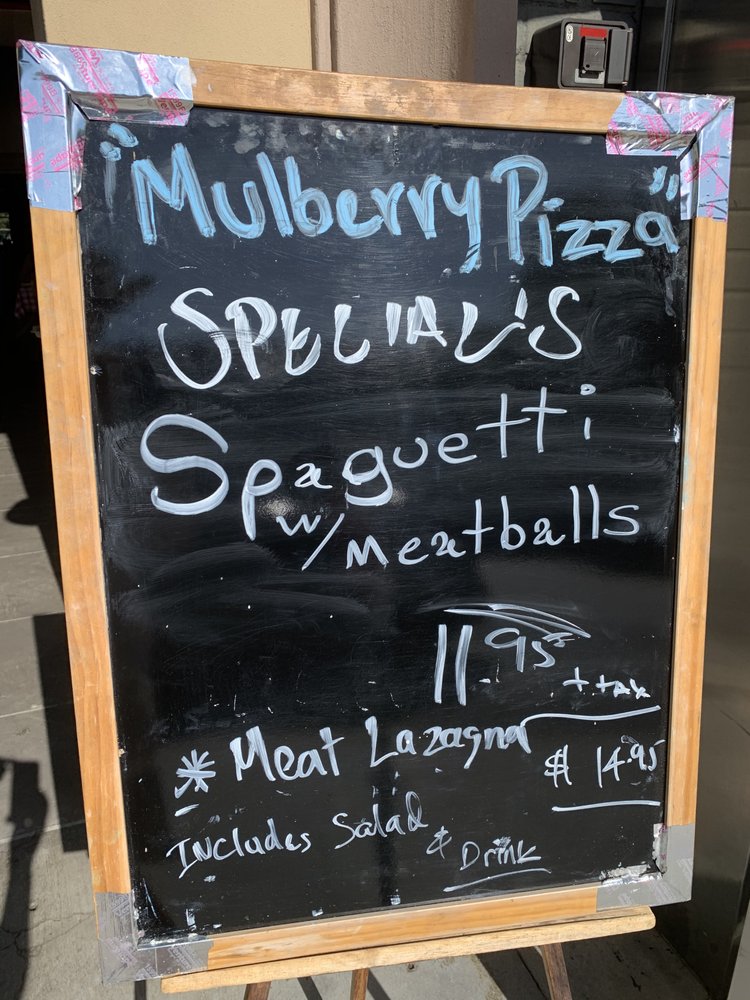 "Mulberry Pizza"
SPECIAL'S
Spaguetti
w/Meatballs
11.95
+ tax
* Meat Lazagna
$ 14.95
Includes Salad
& Drink